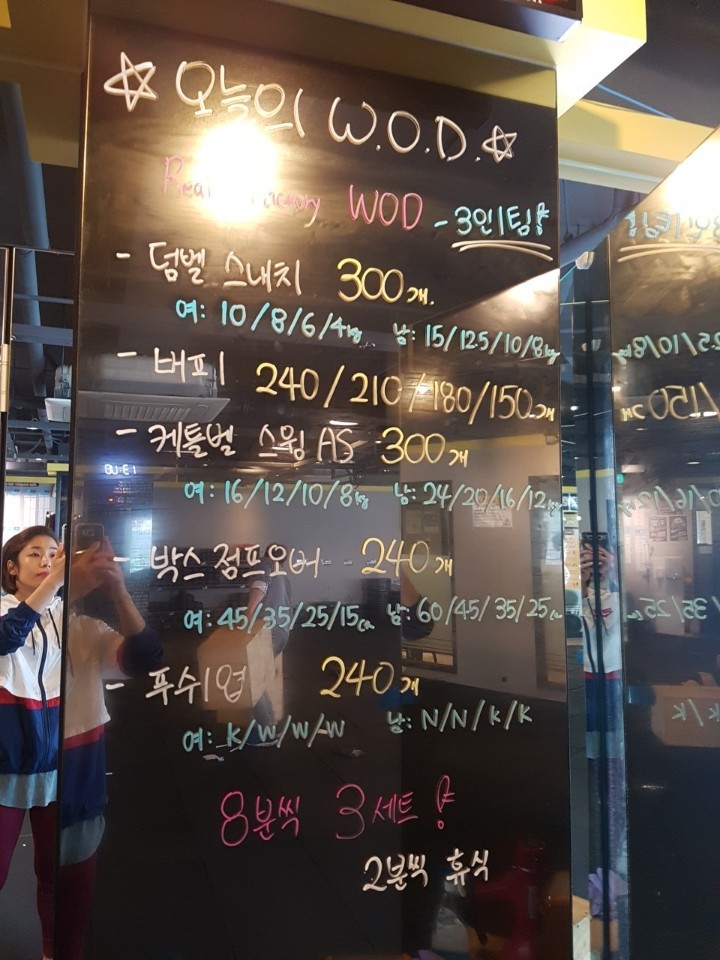 ☆ 오늘의 W.O.D. ☆
Factory WOD - 3인1팀
- 덤벨 스내치 300개.
여: 10/8/6/4kg 남: 15/12.5/10/8kg
- 버피 240/210/180/150개
- 케틀벨 스윙 AS 300개
여: 16/12/10/8kg 남: 24/20/16/12kg
- 박스 점프오버 - 240개
여: 45/35/25/15cm 남: 60/45/35/25cm
- 푸쉬업 240개
여: K/W/W/W 남: N/N/K/K
8분씩 3세트
2분씩 휴식